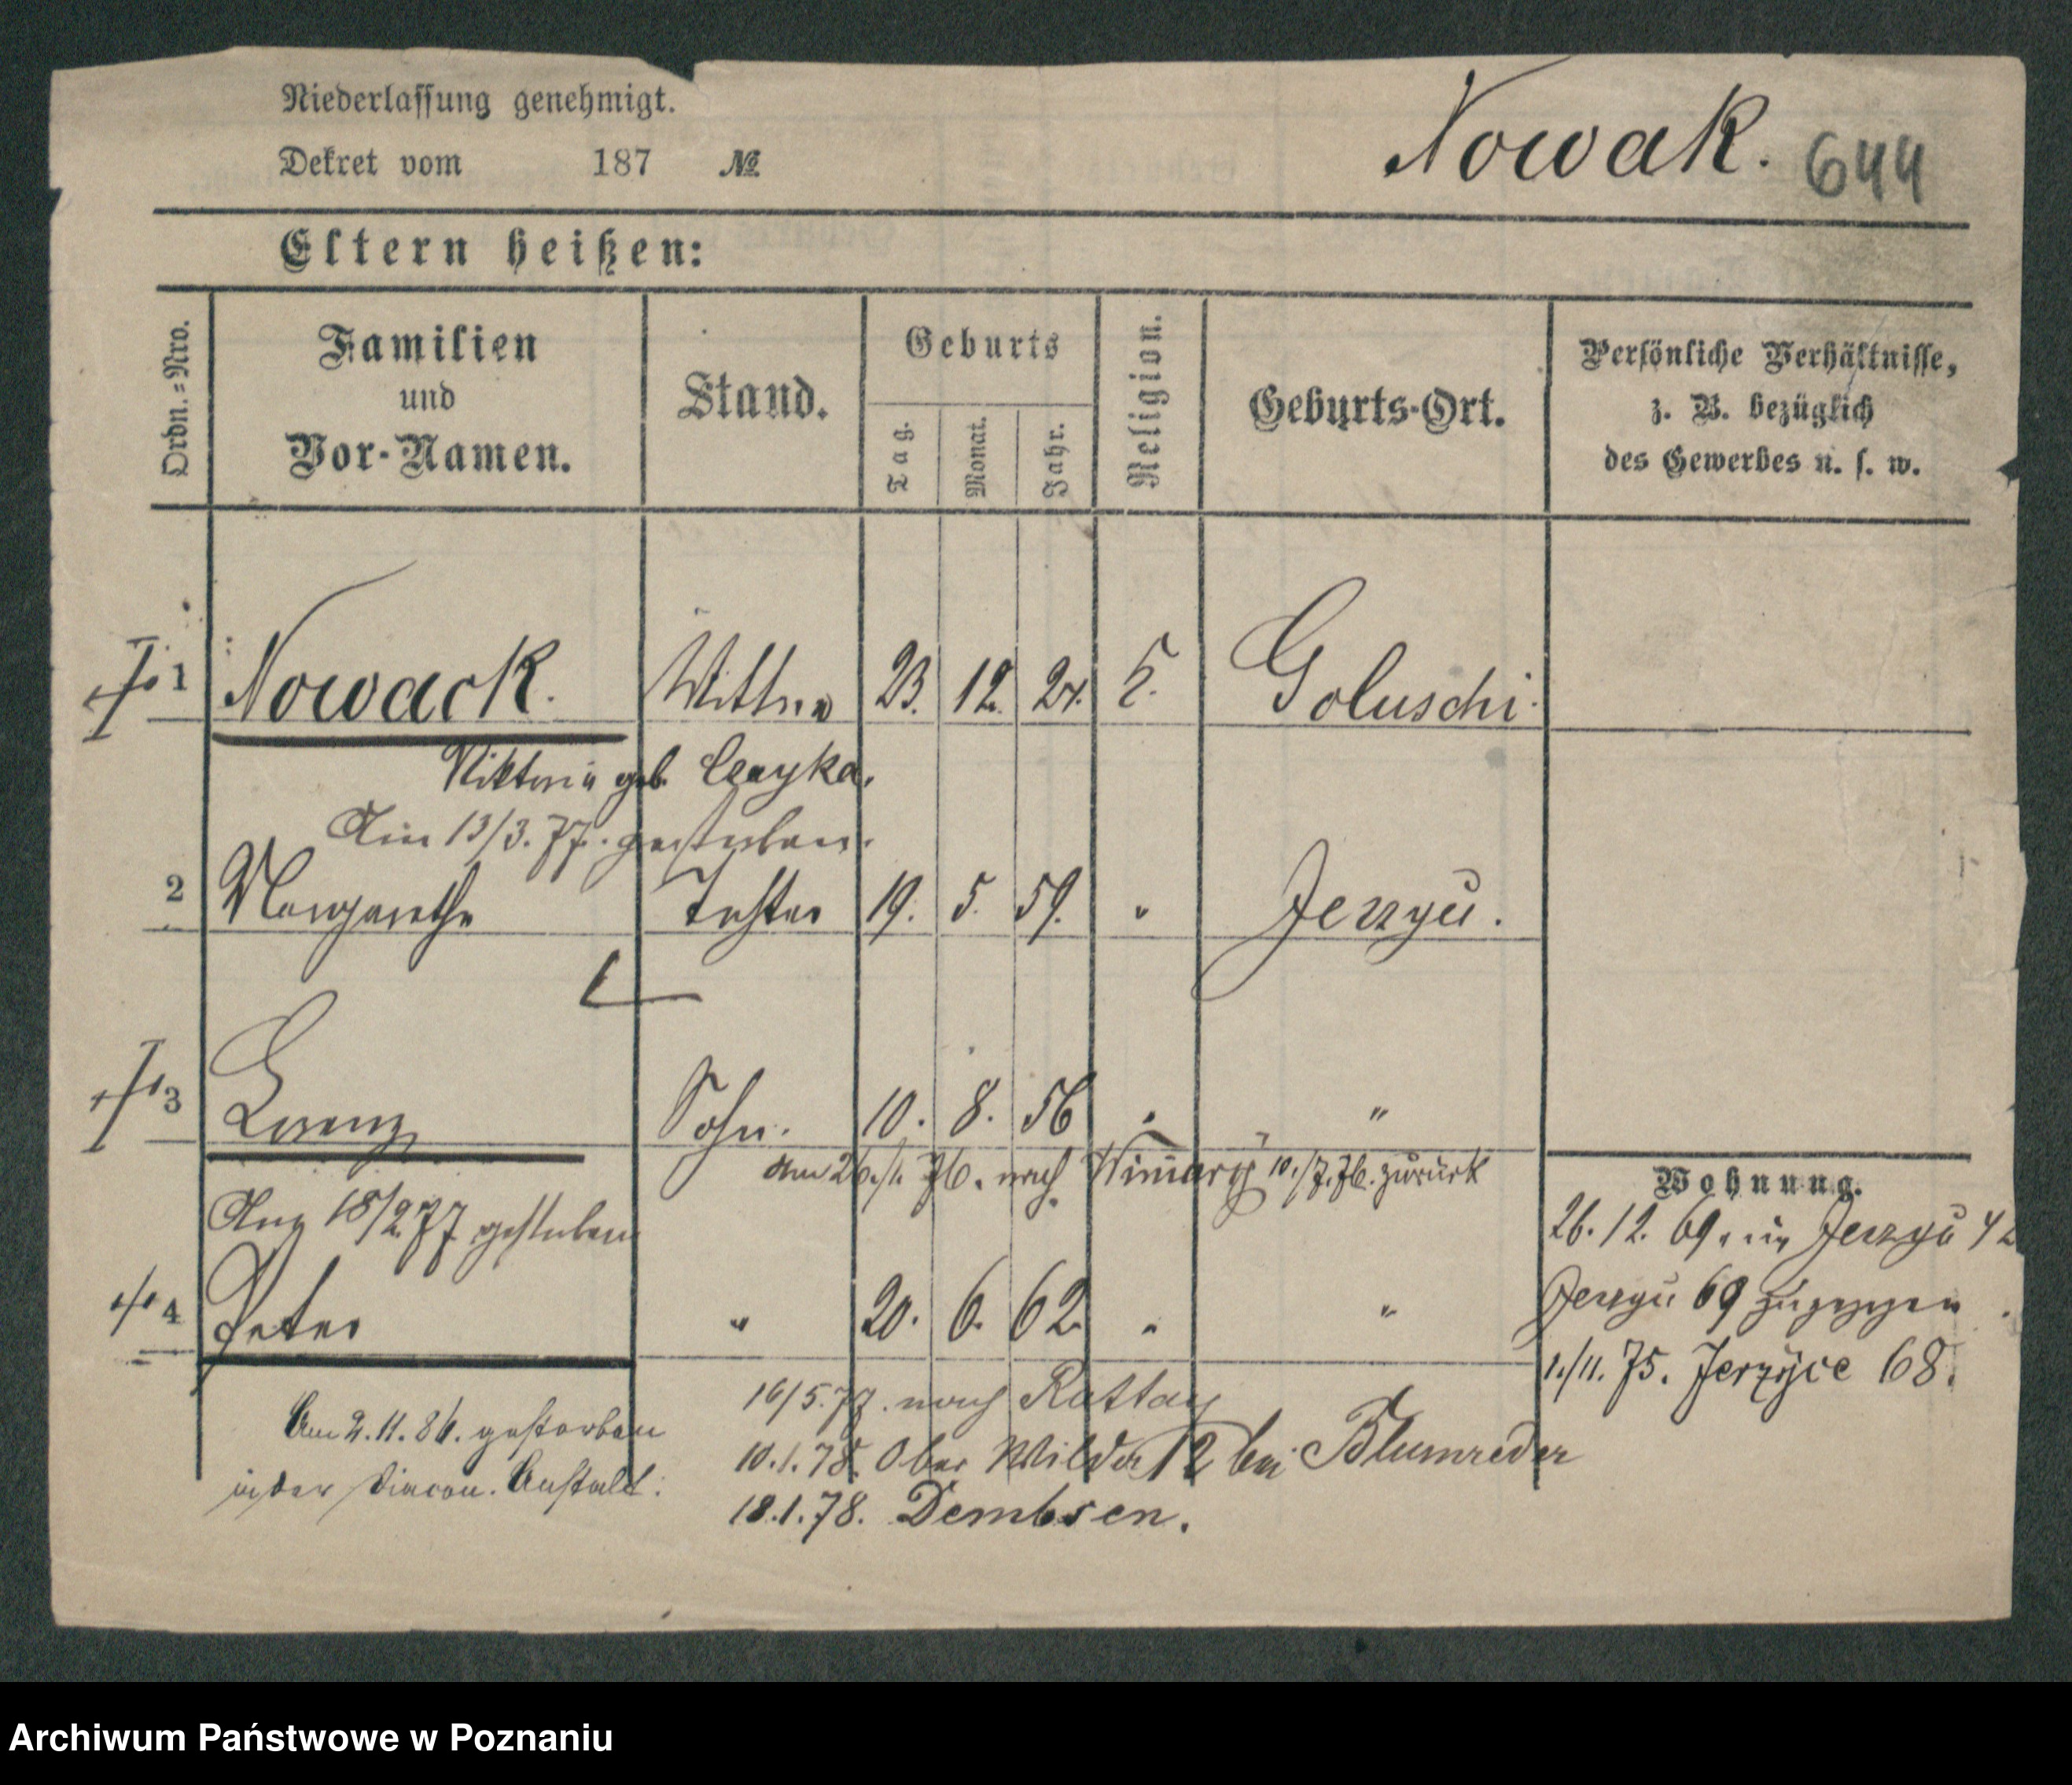 Niederlassung genehmigt.
Dekret vom 187 №
Nowak. 644
Eltern heißen:
Ordn.-Nro.
Familien und Vor-Namen.
Stand.
Geburts
Tag. Monat. Jahr.
Religion.
Geburts-Ort.
Persönliche Verhältnisse,
z. B. bezüglich
des Gewerbes u. s. w.
1 Nowack. Wittwe 23. 12. 24. k. Goluschi.
Viktoria geb. Czayka.
Am 13/3. 77. gestorben.
2 Margarethe Tochter 19. 5. 59. " Jerzyce.
3 Lorenz Sohn. 10. 8. 56 " "
am 26./1. 76. nach Winiary 10./7. 76. zurück
Am 18/2 77 gestorben
4 Peter " 20. 6. 62. " "
Am 2. 11. 86. gestorben
in der Diacon. Anstalt.
16/5. 77. nach Rattay
10. 1. 78. Ober Wilda 12 bei Blumreder
18. 1. 78. Dembsen.
Wohnung.
26. 12. 69. in Jerzyce 42
Jerzyce 69 zugezogen.
1./11. 75. Jerzyce 68.
Archiwum Państwowe w Poznaniu